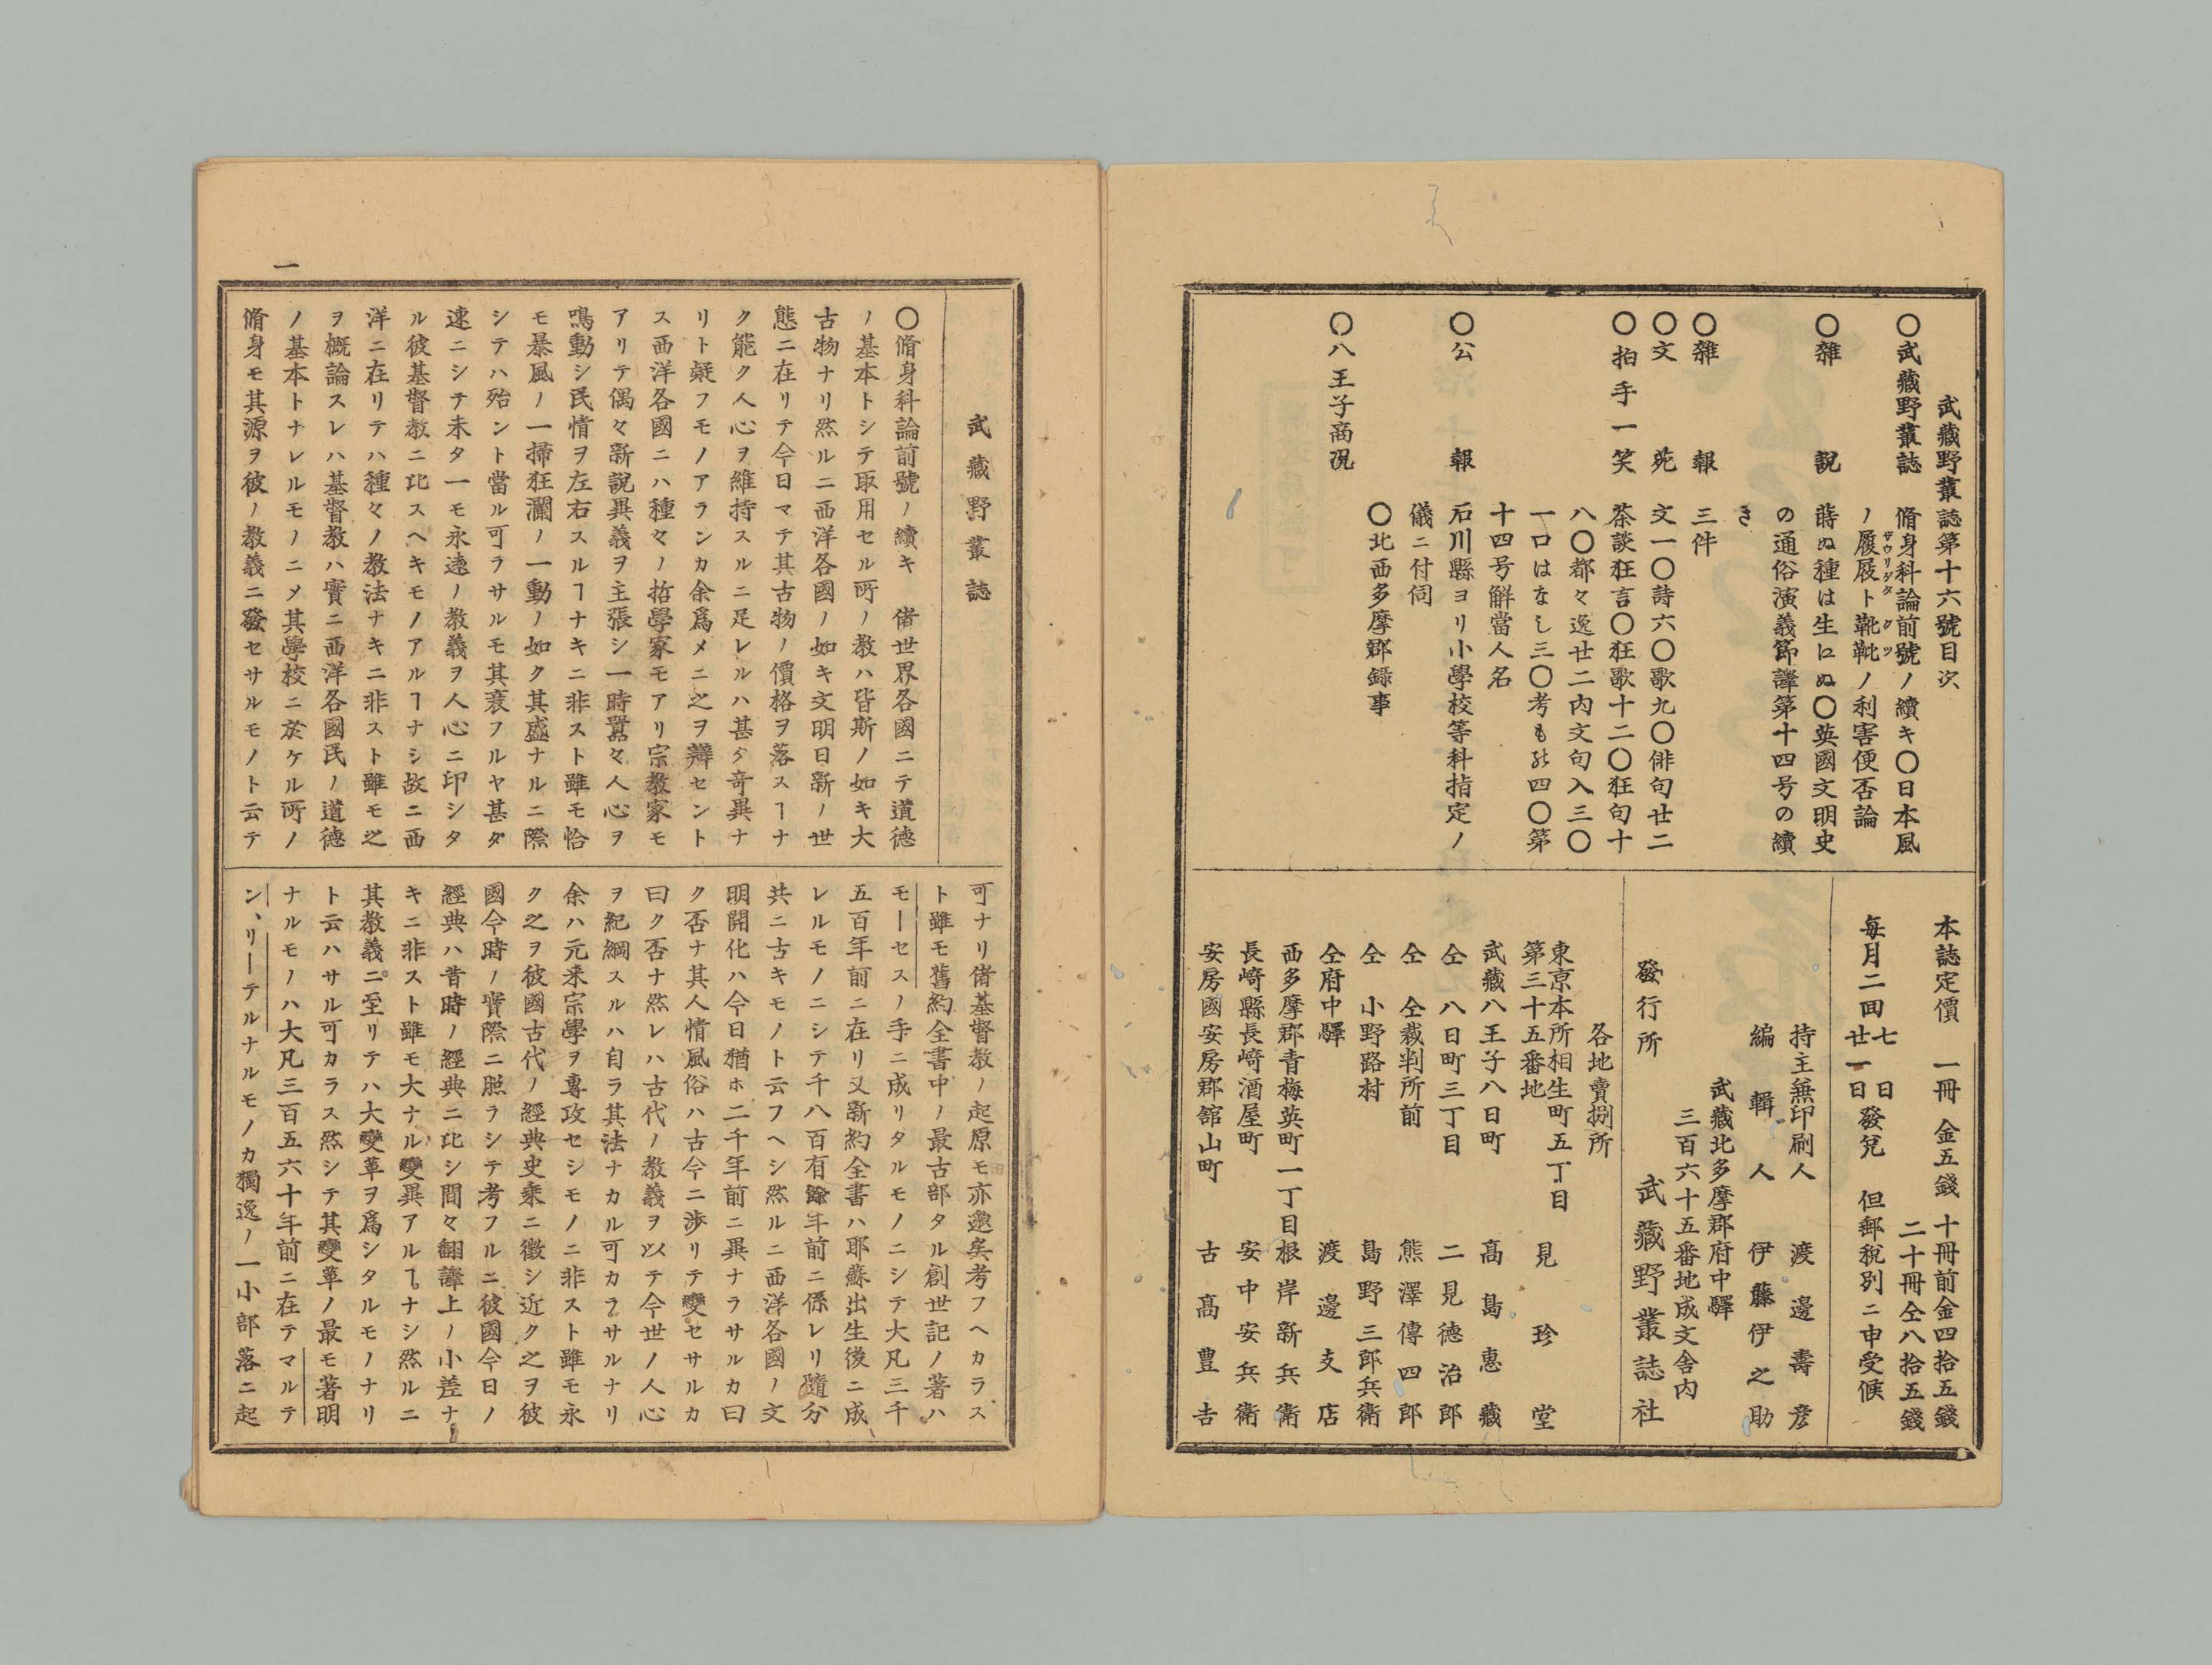 武藏野叢誌第十六號目次
〇武藏野叢誌 脩身科論前號ノ續キ〇日本風
ノ履屐ト靴靴ノ利害便否論
ザウリゲタ クツ
〇雜説 蒔ぬ種は生にぬ〇英國文明史
の通俗演義節譯第十四号の續
き
〇雜報 三件
〇文苑 文一〇詩六〇歌九〇俳句廿二
〇拍手一笑 茶談狂言〇狂歌十二〇狂句十
八〇都々逸廿二内文句入三〇
一口はなし三〇考もの四〇第
十四号解當人名
〇公報 石川縣ヨリ小學校等科指定ノ
儀ニ付伺
〇北西多摩郡録事
〇八王子商況
本誌定價 一冊 金五錢 十冊前金四拾五錢
二十冊仝八拾五錢
每月二回 七日 廿一日 發兌 但郵税別ニ申受候
持主兼印刷人 渡邊壽彦
編輯人 伊藤伊之助
武藏北多摩郡府中驛
三百六十五番地成文舍内
發行所 武藏野叢誌社
各地賣捌所
東京本所相生町五丁目
第三十五番地 見珍堂
武藏八王子八日町 髙島惠藏
仝 八日町三丁目 二見德治郎
仝 仝裁判所前 熊澤傳四郎
仝 小野路村 島野三郎兵衛
仝府中驛 渡邊支店
西多摩郡青梅英町一丁目 根岸新兵衛
長崎縣長崎酒屋町 安中安兵衛
安房國安房郡舘山町 古髙豊吉
一
武藏野叢誌
〇脩身科論前號ノ續キ 偖世界各國ニテ道德
ノ基本トシテ取用セル所ノ教ハ皆斯ノ如キ大
古物ナリ然ルニ西洋各國ノ如キ文明日新ノ世
態ニ在リテ今日マテ其古物ノ價格ヲ落スヿナ
ク能ク人心ヲ維持スルニ足レルハ甚タ奇異ナ
リト疑フモノアランカ余爲メニ之ヲ辯セント
ス西洋各國ニハ種々ノ哲學家モアリ宗教家モ
アリテ偶々新説異義ヲ主張シ一時囂々人心ヲ
鳴動シ民情ヲ左右スルヿナキニ非スト雖モ恰
モ暴風ノ一掃狂瀾ノ一動ノ如ク其盛ナルニ際
シテハ殆ント當ル可ラサルモ其衰フルヤ甚ダ
速ニシテ未タ一モ永遠ノ教義ヲ人心ニ印シタ
ル彼基督教ニ比スヘキモノアルヿナシ故ニ西
洋ニ在リテハ種々ノ教法ナキニ非スト雖モ之
ヲ概論スレハ基督教ハ實ニ西洋各國民ノ道德
ノ基本トナレルモノニメ其學校ニ於ケル所ノ
脩身モ其源ヲ彼ノ教義ニ發セサルモノト云テ
可ナリ偖基督教ノ起原モ亦邈矣考フヘカラス
ト雖モ舊約全書中ノ最古部タル創世記ノ著ハ
モーセスノ手ニ成リタルモノニシテ大凡三千
五百年前ニ在リ又新約全書ハ耶蘇出生後ニ成
レルモノニシテ千八百有餘年前ニ係レリ隨分
共ニ古キモノト云フヘシ然ルニ西洋各國ノ文
明開化ハ今日猶ホ二千年前ニ異ナラサルカ曰
ク否ナ其人情風俗ハ古今ニ渉リテ變セサルカ
曰ク否ナ然レハ古代ノ教義ヲ以テ今世ノ人心
ヲ紀綱スルハ自ラ其法ナカル可カラサルナリ
余ハ元来宗學ヲ專攻セシモノニ非スト雖モ永
ク之ヲ彼國古代ノ經典史乘ニ徵シ近ク之ヲ彼
國今時ノ實際ニ照ラシテ考フルニ彼國今日ノ
經典ハ昔時ノ經典ニ比シ間々翻譯上ノ小差ナ
キニ非スト雖モ大ナル變異アルヿナシ然ルニ
其教義ニ至リテハ大變革ヲ爲シタルモノナリ
ト云ハサル可カラス然シテ其變革ノ最モ著明
ナルモノハ大凡三百五六十年前ニ在テマルテ
ン、リーテルナルモノカ獨逸ノ一小部落ニ起